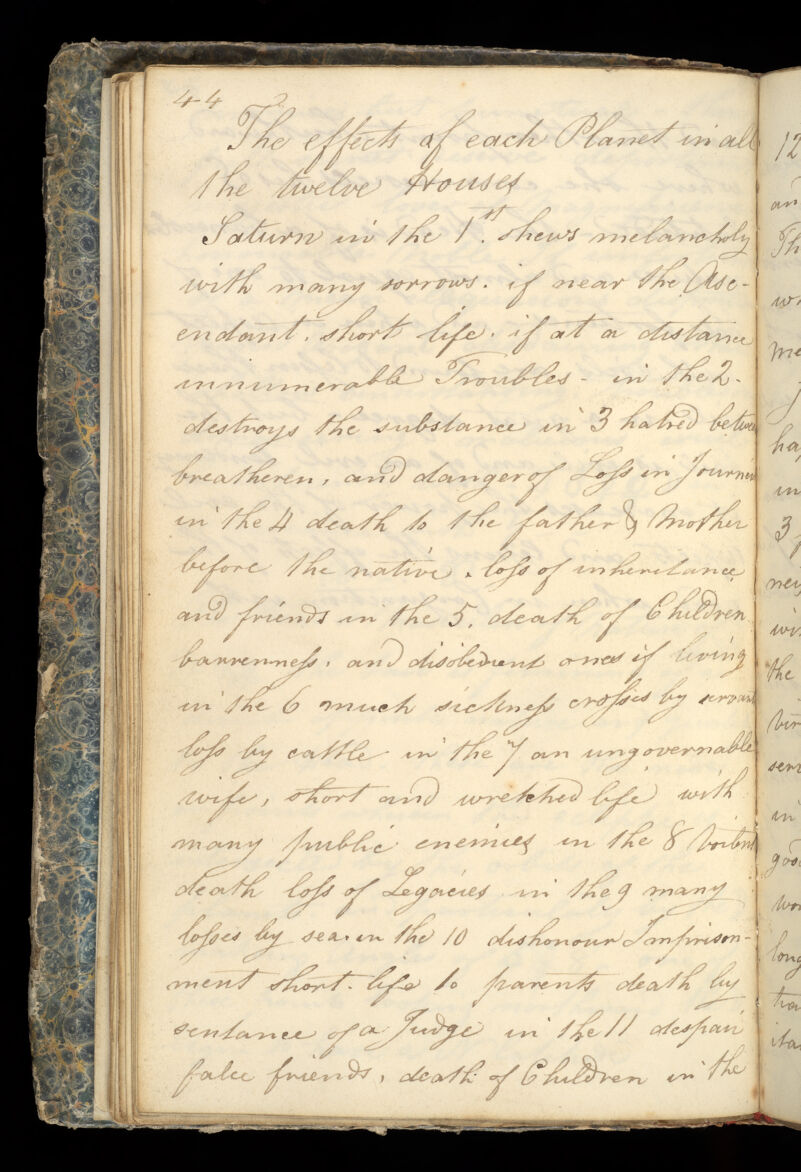 44
The effects of each Planet in all
the twelve Houses
Saturn in the 1st. shews melancholy
with many sorrows. if near the Asc-
endant. short life. if at a distance
innumerable Troubles - in the 2-
destroys the substance in 3 hatred betwee
breatheren, and danger of Loss in Journei
in the 4 death to the father & Mother
before the native. loss of inheritance
and friends in the 5. death of Children
barrenness. and disobedient ones if living
in the 6 much sickness crosses by servant
loss by cattle in the 7 an ungovernable
wife, short and wretched life with
many public enemies in the 8 Voilent
death loss of Legacies in the 9 many
losses by sea. in the 10 dishonour Imprison-
ment short life to parents death by
sentance of a Judge in the 11 despair
false friends, death of Children in the
12
an
Th
wi
me
ha
in
3
nei
wi
the
Vir
serv
in
good
wo
long
tra
ita